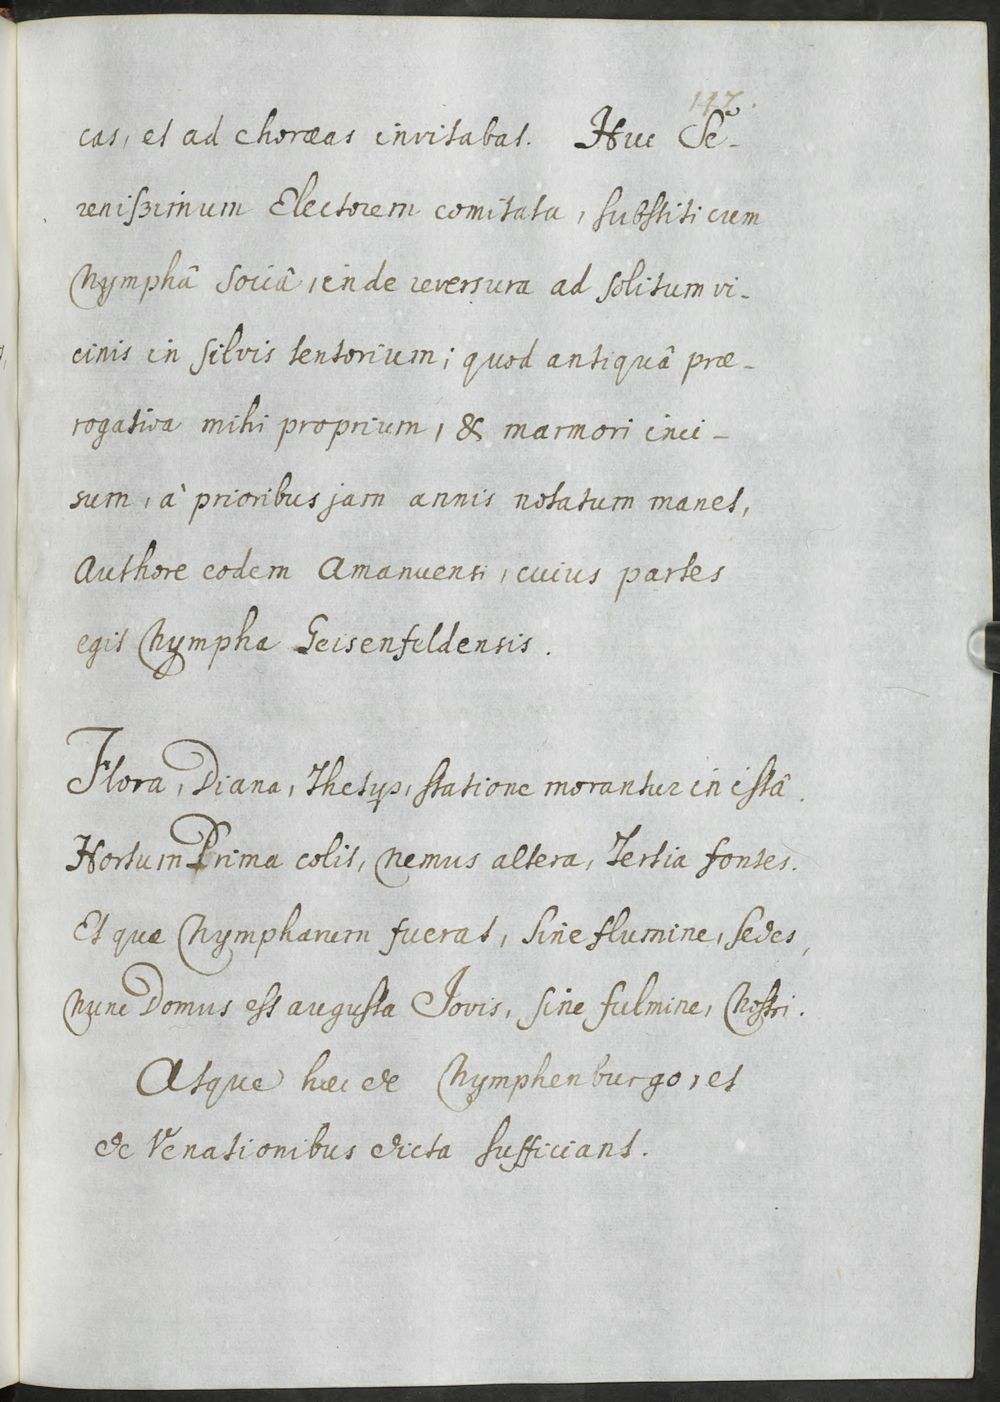 147.
cas, et ad choræas invitabat. Huc Se-
renissimum Electorem comitata, substiti cum
Nymphâ Sociâ, inde reversura ad solitum vi-
cinis in silvis tentorium; quod antiquâ præ-
rogativa mihi proprium, & marmori inci-
sum, à prioribus jam annis notatum manet,
Authore eodem Amanuensi, cuius partes
egit Nympha Geisenfeldensis.
Flora, Diana, Thetys, statione morantur in istâ.
Hortum Prima colit, Nemus altera, Tertia fontes.
Et quæ Nympharum fuerat, sine flumine, sedes,
Nunc Domus est augusta Jovis, sine fulmine, Nostri.
Atque hæc de Nymphenburgo, et
de Venationibus dicta sufficiant.